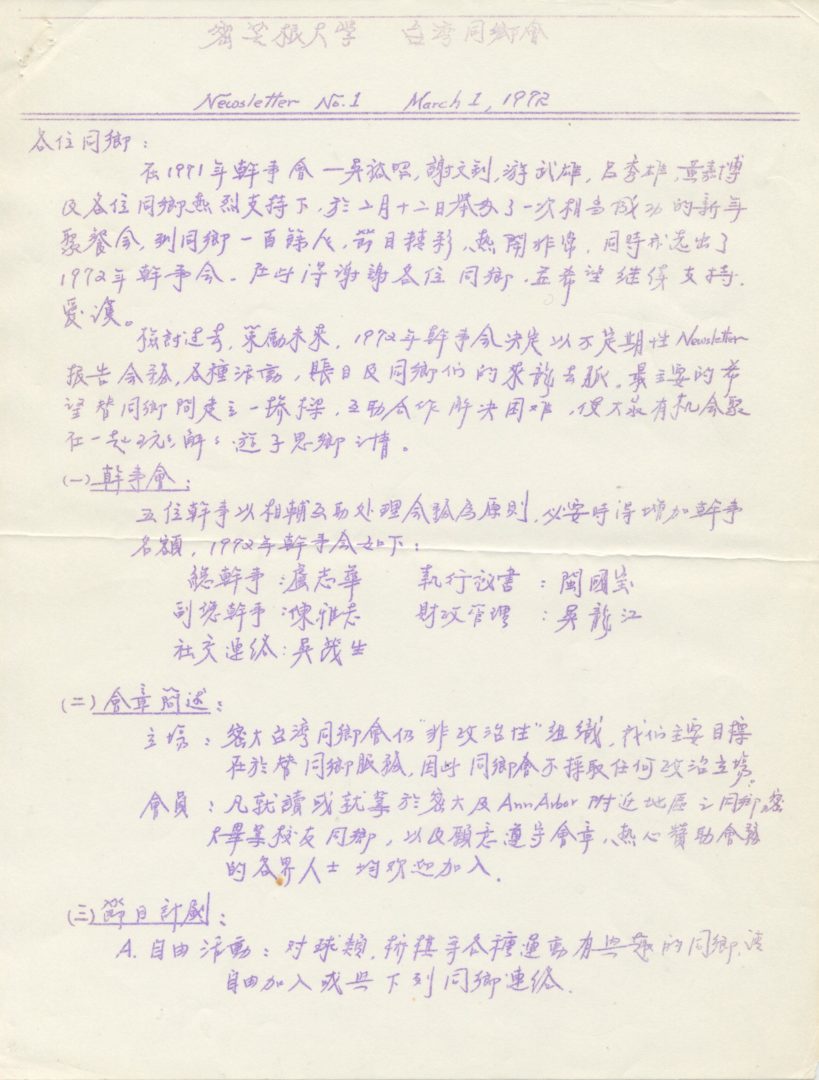 密芝根大学 台湾同鄉會
Newsletter No.1 March 1, 1972
各位同鄉：
在1971年幹事會—吳 昭，謝文到，游武雄，呂季雄，黃嘉博
及各位同鄉热烈支持下，於二月十二日举办了一次相当成功的新年
聚餐会，到同鄉一百餘人，節目精彩、热闹非常，同時亦选出了
1972年幹事会。在此得謝謝各位同鄉，並希望继续支持．
爱護。
檢討过去，策励未来，1972年幹事会决定以不定期性Newsletter
报告会務，各種活動，賬目及同鄉们的來龍去脈。最主要的希
望替同鄉間建立一座橋樑，互助合作解决困难，使大家有机会聚
在一起玩玩，解解遊子思鄉之情。
(一)幹事會：
五位幹事以相輔互助处理会務為原则，必要時得增加幹事
名額，1972年幹事会如下：
總幹事：盧志華 執行秘書：閩國宝
副總幹事：陳雅志 財政管理：吳龍江
社交連络：吳茂生
(二)會章简述：
立埸：密大台湾同鄉會仍"非政治性"组織，我们主要目標
在於替同鄉服務，因此同鄉會不採取任何政治立埸。
會員：凡就讀或就業於密大及Ann Arbor附近地區之同鄉，密
大畢業校友同鄉，以及願意遵守會章、热心贊助會務
的各界人士均欢迎加入．
(三)節目計劃：
A. 自由活動：对球類，棋等各種運動有兴趣的同鄉，请
自由加入或与下列同鄉連络．